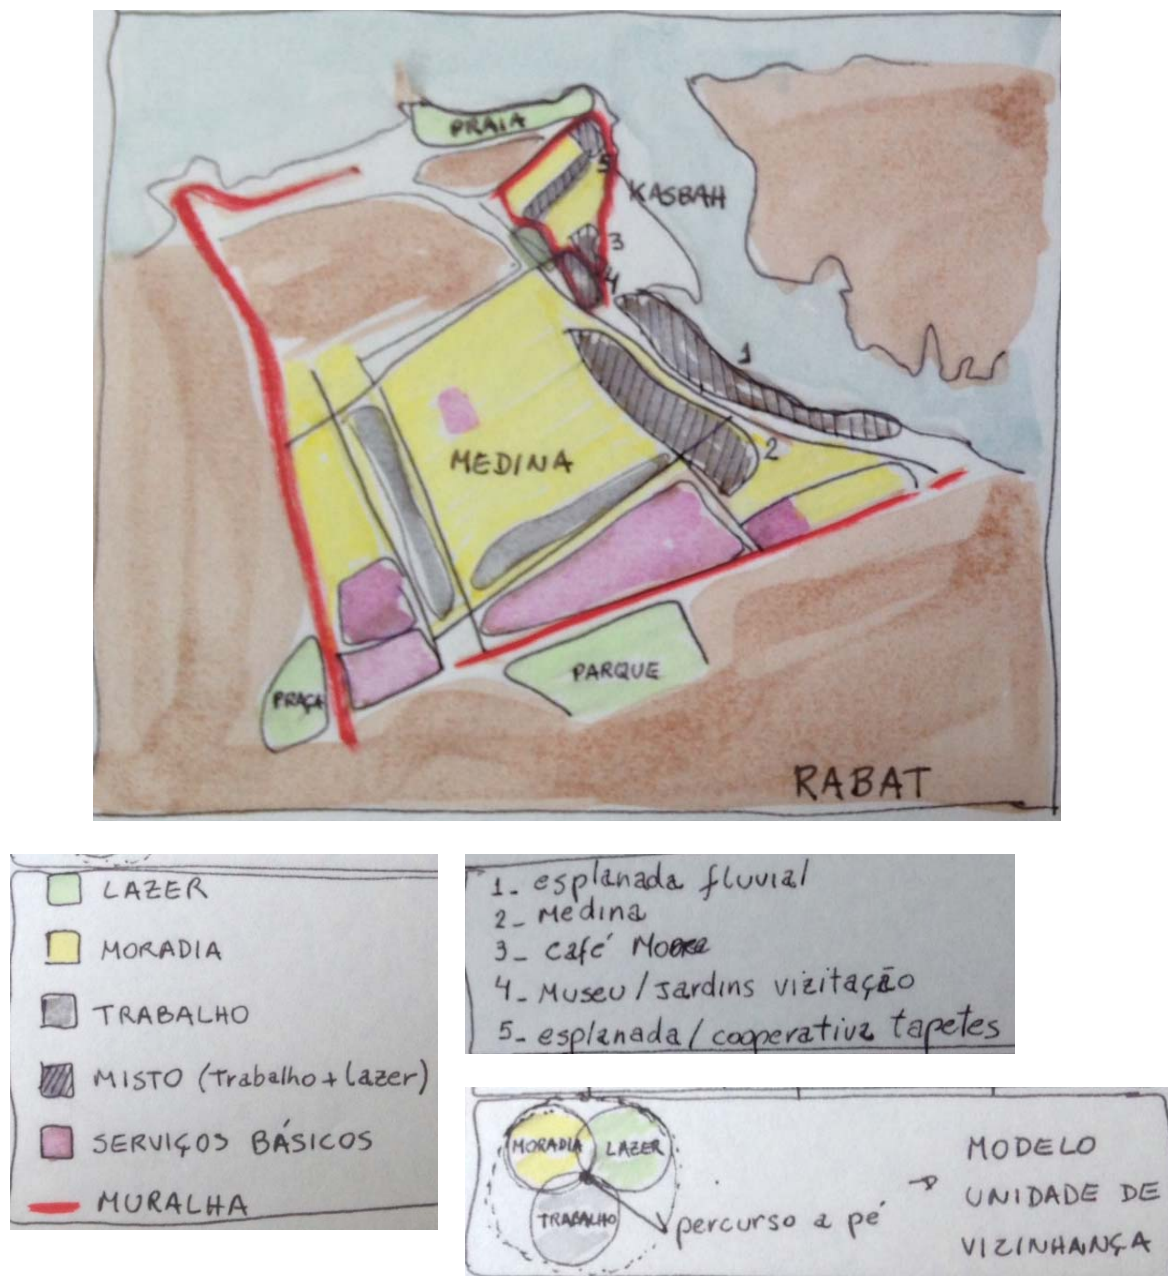 PRAIA
5
KASBAH
3
4
1
MEDINA
2
PRAÇA
PARQUE
RABAT
LAZER
MORADIA
TRABALHO
MISTO (Trabalho + lazer)
SERVIÇOS BÁSICOS
MURALHA
1_ esplanada fluvial
2_ Medina
3_ Café
4_ Museu / Jardins vizitação
5_ esplanada / cooperativa tapetes
MORADIA LAZER
TRABALHO
percurso a pé
MODELO
UNIDADE DE
VIZINHANÇA